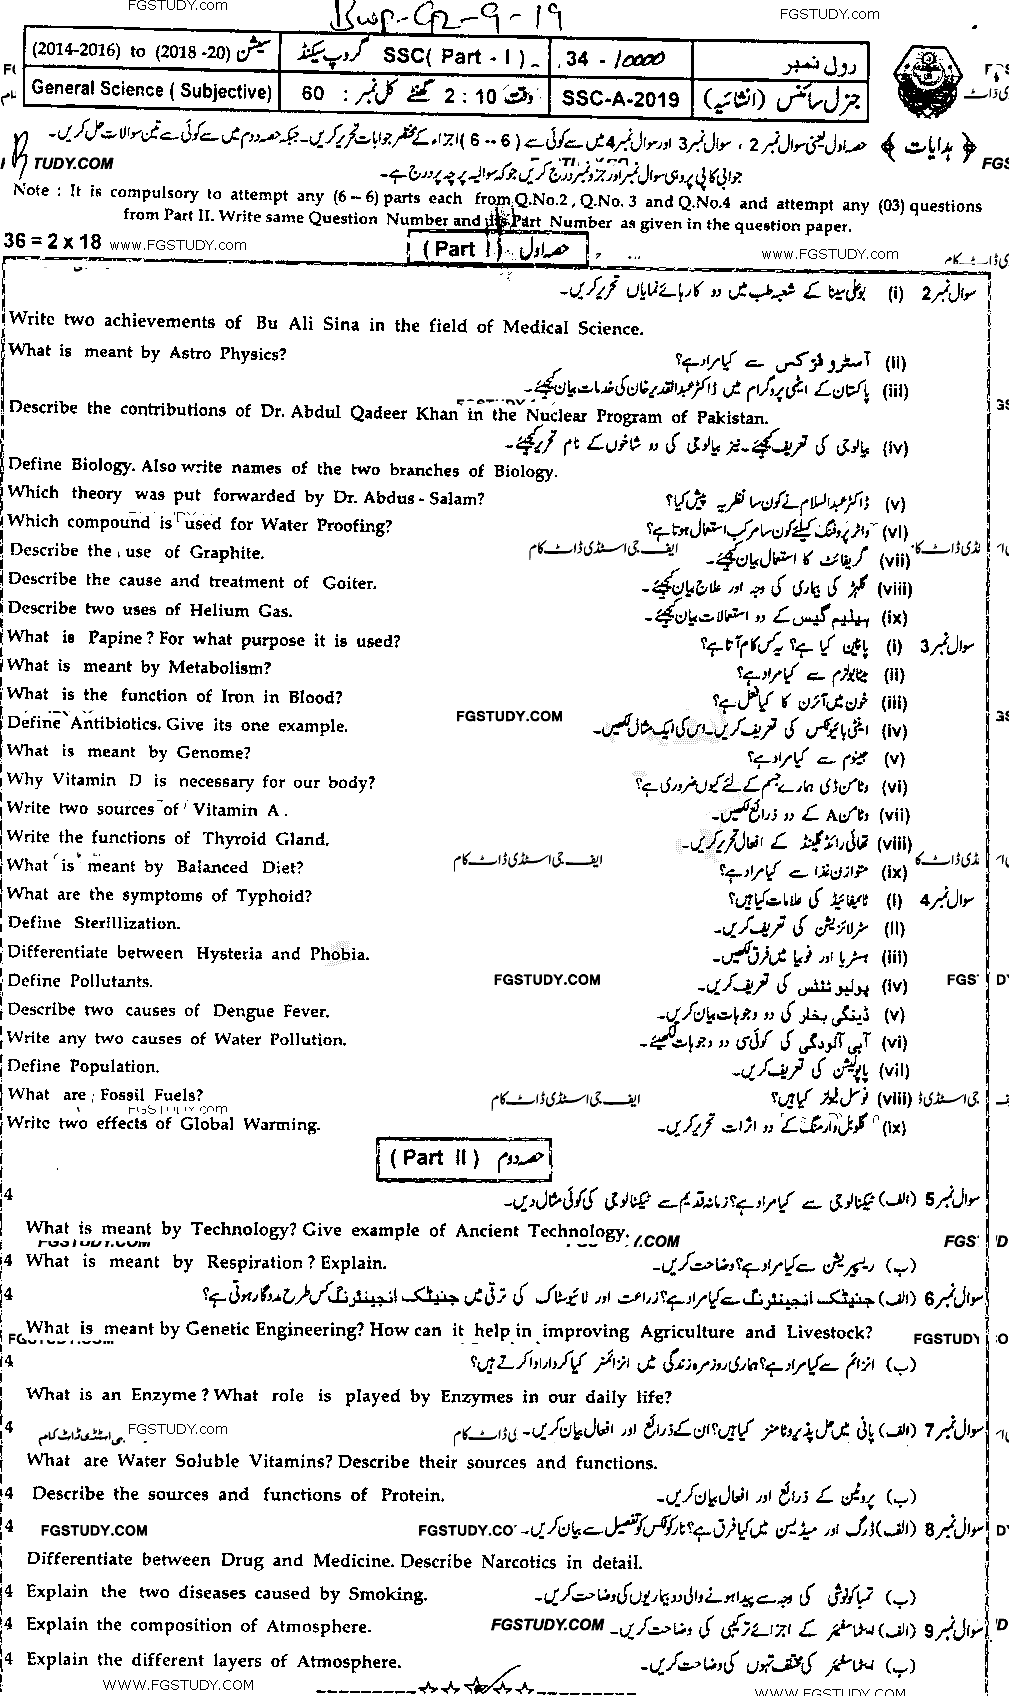 FGSTUDY.com
Bwp-G2-9-19
FGSTUDY.com
سیشن (2014-2016) to (2018 -20)
SSC( Part - I ) گروپ سیکنڈ
34 - 10000
رول نمبر
General Science ( Subjective)
وقت 2 : 10 گھنٹے کل نمبر : 60
SSC-A-2019
جنرل سائنس (انشائیہ)
﴿ ہدایات ﴾ حصہ اول یعنی سوال نمبر 2 ، سوال نمبر 3 اور سوال نمبر 4 میں سے کوئی سے ( 6 -- 6 ) اجزاء کے مختصر جوابات تحریر کریں۔ جبکہ حصہ دوم میں سے کوئی سے تین سوالات حل کریں۔
TUDY.COM
FGS
جوابی کاپی پر وہی سوال نمبر اور جزو نمبر درج کریں جو کہ سوالیہ پرچہ پر درج ہے۔
Note : It is compulsory to attempt any (6 – 6) parts each from Q.No.2 , Q.No. 3 and Q.No.4 and attempt any (03) questions
from Part II. Write same Question Number and its Part Number as given in the question paper.
36 = 2 x 18 www.FGSTUDY.com
( Part I ) حصہ اول
www.FGSTUDY.com
سوال نمبر 2 (i) بوعلی سینا کے شعبہ طب میں دو کارہائے نمایاں تحریر کریں۔
Write two achievements of Bu Ali Sina in the field of Medical Science.
What is meant by Astro Physics?
(ii) آسٹرو فزکس سے کیا مراد ہے؟
(iii) پاکستان کے ایٹمی پروگرام میں ڈاکٹر عبدالقدیر خان کی خدمات بیان کیجئے۔
Describe the contributions of Dr. Abdul Qadeer Khan in the Nuclear Program of Pakistan.
(iv) بیالوجی کی تعریف کیجئے۔ نیز بیالوجی کی دو شاخوں کے نام تحریر کیجئے۔
Define Biology. Also write names of the two branches of Biology.
Which theory was put forwarded by Dr. Abdus - Salam?
(v) ڈاکٹر عبدالسلام نے کون سا نظریہ پیش کیا؟
Which compound is used for Water Proofing?
(vi) واٹر پروفنگ کیلئے کون سا مرکب استعمال ہوتا ہے؟
Describe the use of Graphite.
ایف جی اسٹڈی ڈاٹ کام
(vii) گریفائٹ کا استعمال بیان کیجئے۔
Describe the cause and treatment of Goiter.
(viii) گلہڑ کی بیماری کی وجہ اور علاج بیان کیجئے۔
Describe two uses of Helium Gas.
(ix) ہیلیم گیس کے دو استعمالات بیان کیجئے۔
What is Papine ? For what purpose it is used?
سوال نمبر 3 (i) پاپین کیا ہے؟ یہ کس کام آتا ہے؟
What is meant by Metabolism?
(ii) میٹابولزم سے کیا مراد ہے؟
What is the function of Iron in Blood?
(iii) خون میں آئرن کا کیا فعل ہے؟
Define Antibiotics. Give its one example.
FGSTUDY.COM
(iv) اینٹی بائیوٹکس کی تعریف کریں۔ اس کی ایک مثال لکھیں۔
What is meant by Genome?
(v) جینوم سے کیا مراد ہے؟
Why Vitamin D is necessary for our body?
(vi) وٹامن ڈی ہمارے جسم کے لئے کیوں ضروری ہے؟
Write two sources of Vitamin A .
(vii) وٹامن A کے دو ذرائع لکھیں۔
Write the functions of Thyroid Gland.
(viii) تھائی رائڈ گلینڈ کے افعال تحریر کریں۔
What is meant by Balanced Diet?
ایف جی اسٹڈی ڈاٹ کام
(ix) متوازن غذا سے کیا مراد ہے؟
What are the symptoms of Typhoid?
سوال نمبر 4 (i) ٹائیفائیڈ کی علامات کیا ہیں؟
Define Sterillization.
(II) سٹرلائزیشن کی تعریف کریں۔
Differentiate between Hysteria and Phobia.
(iii) ہسٹریا اور فوبیا میں فرق لکھیں۔
Define Pollutants.
FGSTUDY.COM
(iv) پولیوٹنٹس کی تعریف کریں۔
Describe two causes of Dengue Fever.
(v) ڈینگی بخار کی دو وجوہات بیان کریں۔
Write any two causes of Water Pollution.
(vi) آبی آلودگی کی کوئی سی دو وجوہات لکھیئے۔
Define Population.
(vii) پاپولیشن کی تعریف کریں۔
What are Fossil Fuels?
ایف جی اسٹڈی ڈاٹ کام
(viii) فوسل فیولز کیا ہیں؟
FGSTUDY.com
Write two effects of Global Warming.
(ix) گلوبل وارمنگ کے دو اثرات تحریر کریں۔
( Part II ) حصہ دوم
4 سوال نمبر 5 (الف) ٹیکنالوجی سے کیا مراد ہے؟ زمانہ قدیم سے ٹیکنالوجی کی کوئی مثال دیں۔
What is meant by Technology? Give example of Ancient Technology.
FGSTUDY.COM
4 What is meant by Respiration ? Explain.
(ب) ریسپریشن سے کیا مراد ہے؟ وضاحت کریں۔
4 سوال نمبر 6 (الف) جنیٹک انجینئرنگ سے کیا مراد ہے؟ زراعت اور لائیوسٹاک کی ترقی میں جنیٹک انجینئرنگ کس طرح مددگار ہوتی ہے؟
What is meant by Genetic Engineering? How can it help in improving Agriculture and Livestock?
FGSTUDY
4 (ب) انزائم سے کیا مراد ہے؟ ہماری روزمرہ زندگی میں انزائمز کیا کردار ادا کرتے ہیں؟
What is an Enzyme ? What role is played by Enzymes in our daily life?
4 سوال نمبر 7 (الف) پانی میں حل پذیر وٹامنز کیا ہیں؟ ان کے ذرائع اور افعال بیان کریں۔
FGSTUDY.com
What are Water Soluble Vitamins? Describe their sources and functions.
4 Describe the sources and functions of Protein.
(ب) پروٹین کے ذرائع اور افعال بیان کریں۔
4 سوال نمبر 8 (الف) ڈرگ اور میڈیسن میں کیا فرق ہے؟ نارکوٹکس کو تفصیل سے بیان کریں۔
FGSTUDY.COM
FGSTUDY.CO
Differentiate between Drug and Medicine. Describe Narcotics in detail.
4 Explain the two diseases caused by Smoking.
(ب) تمباکو نوشی کی وجہ سے پیدا ہونے والی دو بیماریوں کی وضاحت کریں۔
4 Explain the composition of Atmosphere.
FGSTUDY.COM
سوال نمبر 9 (الف) ایٹماسفیئر کے اجزائے ترکیبی کی وضاحت کریں۔
4 Explain the different layers of Atmosphere.
(ب) ایٹماسفیئر کی مختلف تہوں کی وضاحت کریں۔
WWW.FGSTUDY.COM
WWW.FGSTUDY.COM